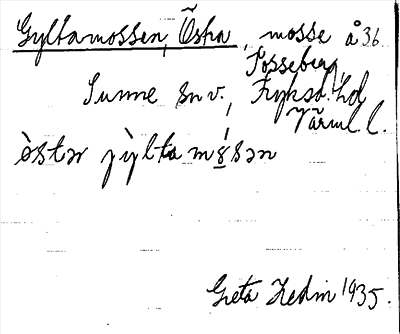 Gyltamossen, Östra, mosse å 36
Posseberg,
Sunne snv., Fryksd. hd
Värml. l.
òstər jỳlta mɷ́sən
Greta Hedin 1935.